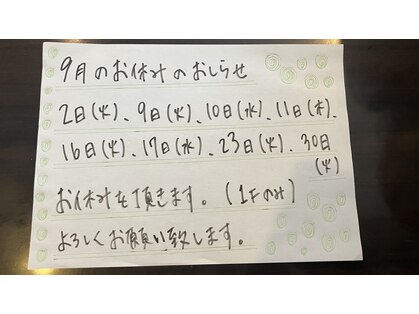 9月のお休みのおしらせ
2日(火)、9日(火)、10日(水)、11日(木)、
16日(火)、17日(水)、23日(火)、30日
(火)
お休みを頂きます。(1Fのみ)
よろしくお願い致します。